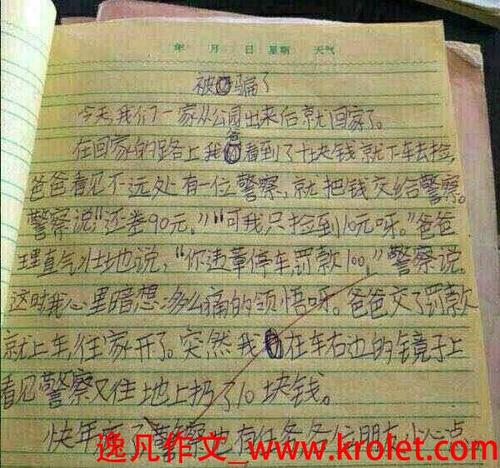 年 月 日 星期 天气
被骗了
今天我们一家从公园出来后就回家了。
在回家的路上我爸看到了十块钱就下车去捡,
爸爸看见不远处有一位警察,就把钱交给警察。
警察说“还差90元,”“可我只捡到10元呀。”爸爸
理直气壮地说,“你违章停车罚款100,”警察说。
这时我心里暗想多么痛的领悟呀。爸爸交了罚款
就上车往家开了。突然我在车右边的镜子上
看见警察又住地上扔了10块钱。
快年底了警察也有任务各位朋友小心点
逸凡作文_www.krolet.com